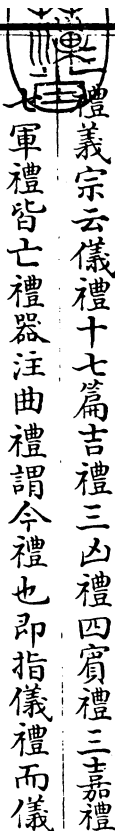 禮義宗云儀禮十七篇吉禮三凶禮四賓禮三嘉禮
七軍禮皆亡禮器注曲禮謂今禮也即指儀禮而儀